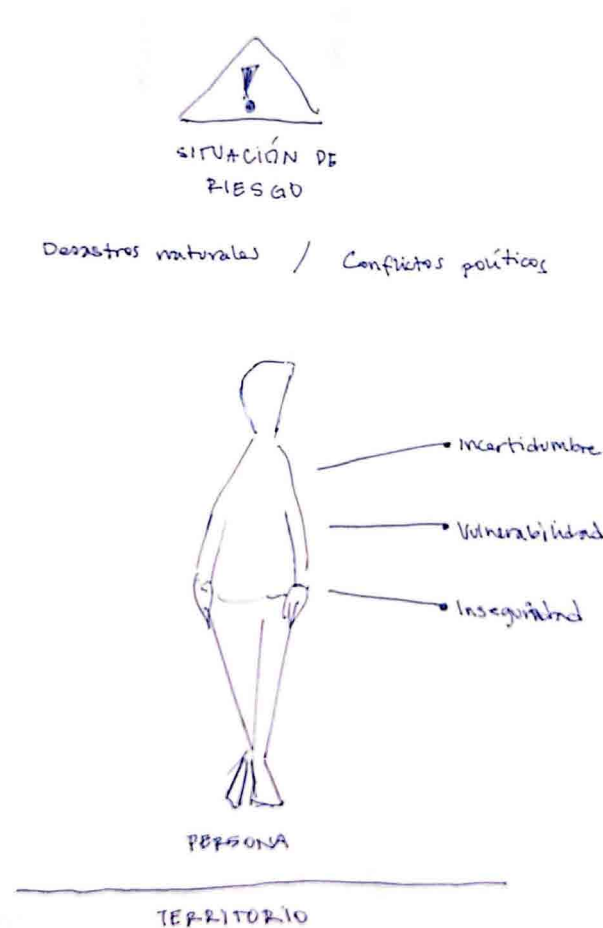 !
SITUACIÓN DE
RIESGO
Desastres naturales / Conflictos políticos
Incertidumbre
Vulnerabilidad
Inseguridad
PERSONA
TERRITORIO